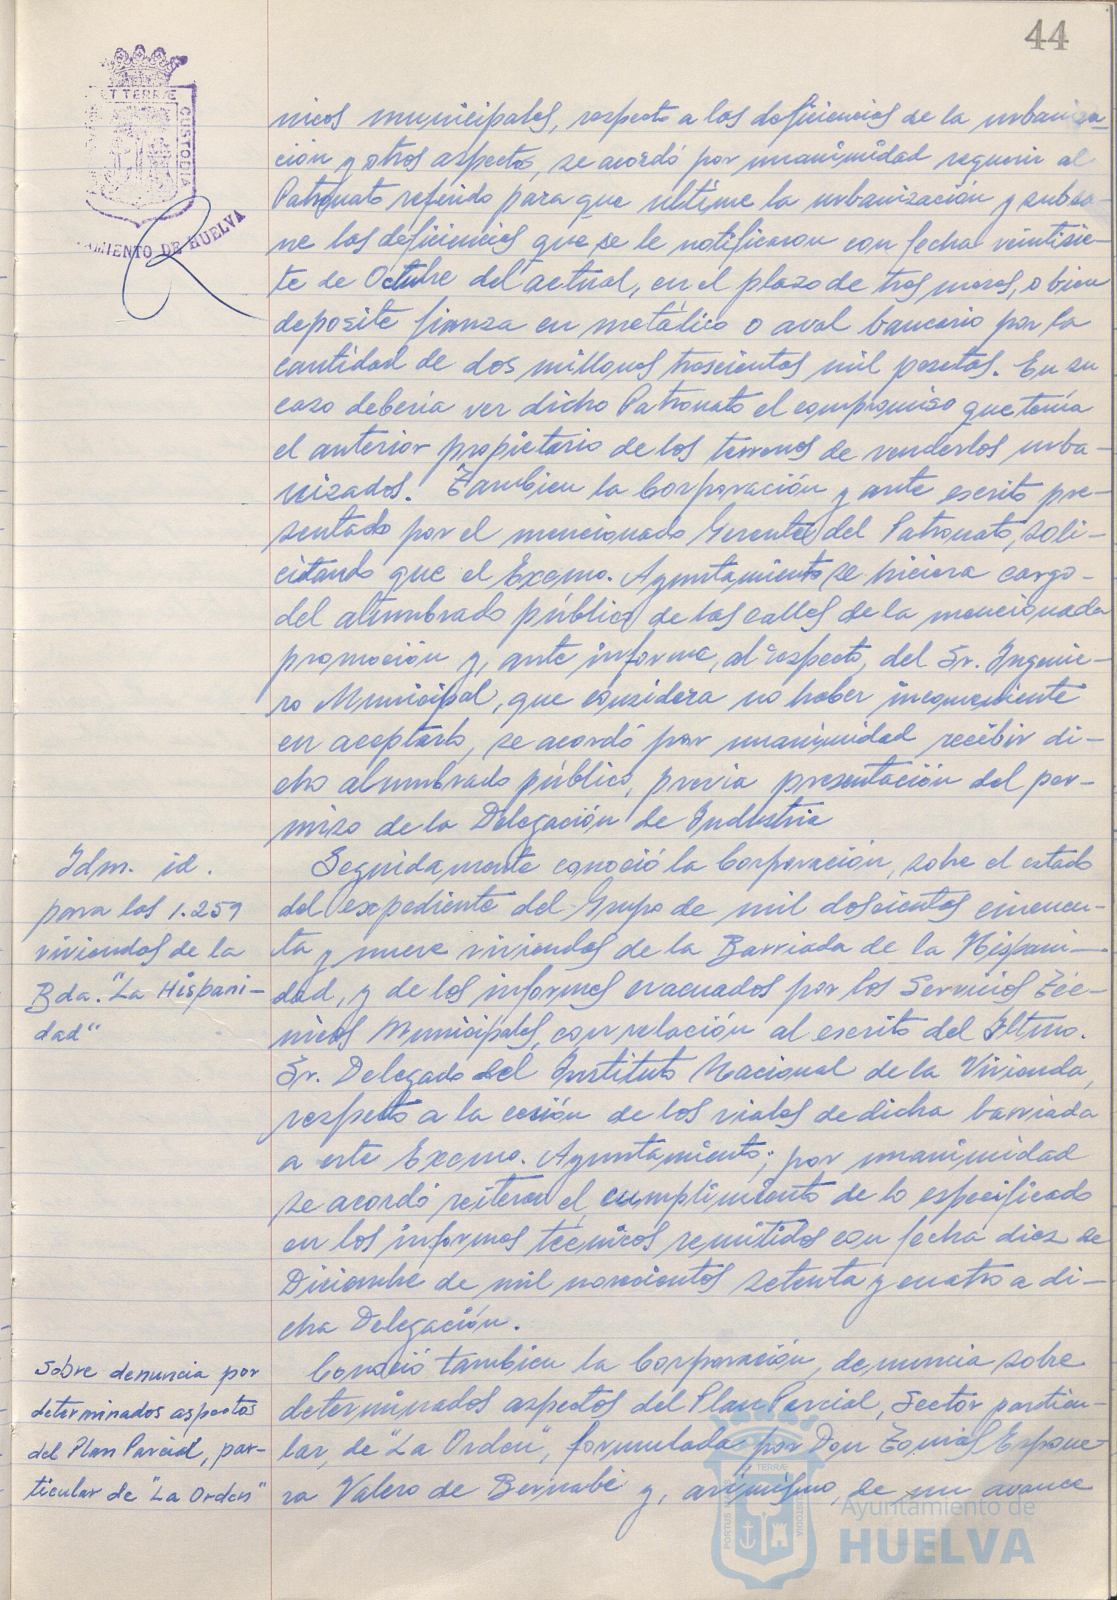 44
ET TERRÆ
CUSTODIA
AMIENTO DE HUELVA
nicos municipales, respecto a las deficiencias de la urbaniza-
ción y otros aspectos, se acordó por unanimidad requerir al
Patronato referido para que ultime la urbanización y subsa-
ne las deficiencias que se le notificaron con fecha veintisie-
te de Octubre del actual, en el plazo de tres meses, o bien
deposite fianza en metálico o aval bancario por la
cantidad de dos millones trescientas mil pesetas. En su
caso debería ver dicho Patronato el compromiso que tenía
el anterior propietario de los terrenos de venderlos urba-
nizados. Tambien la Corporación y ante escrito pre-
sentado por el mencionado Gerente del Patronato, soli-
citando que el Excmo. Ayuntamiento se hiciera cargo
del alumbrado público de las calles de la mencionada
promoción y, ante informe, al respecto, del Sr. Ingenie-
ro Municipal, que considera no haber inconveniente
en aceptarlo, se acordó por unanimidad recibir di-
cho alumbrado público, previa presentación del per-
miso de la Delegación de Industria
Idm. id.
para las 1.259
viviendas de la
Bda. "La Hispani-
dad"
Seguidamente conoció la Corporación, sobre el estado
del expediente del Grupo de mil doscientas cincuen-
ta y nueve viviendas de la Barriada de la Hispani-
dad, y de los informes evacuados por los Servicios Téc-
nicos Municipales, con relación al escrito del Iltmo.
Sr. Delegado del Instituto Nacional de la Vivienda,
respecto a la cesión de los viales de dicha barriada
a este Excmo. Ayuntamiento; por unanimidad
se acordó reiterar el cumplimiento de lo especificado
en los informes técnicos remitidos con fecha diez de
Diciembre de mil novecientos setenta y cuatro a di-
cha Delegación.
Sobre denuncia por
determinados aspectos
del Plan Parcial, par-
ticular de "La Orden"
Conoció tambien la Corporación, denuncia sobre
determinados aspectos del Plan Parcial, Sector particu-
lar, de "La Orden", formulada por Don Tomás Espone-
ra Valero de Bernabé y, asimismo, de un avance
TERRÆ
PORTUS
CUSTODIA
Ayuntamiento de
HUELVA